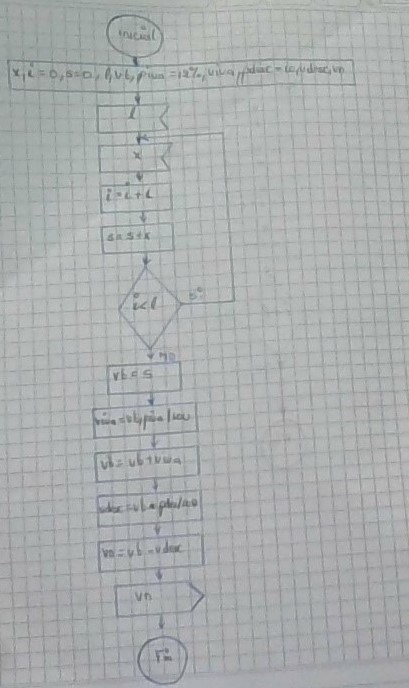 inicial
x, i=0, s=0, l, vb, piva=12%, viva, pdesc=10, vdesc, vn
l
x
i=i+1
s=s+x
i<l
si
no
vb=s
viva=vb*piva/100
vb=vb+viva
vdesc=vb*pdes/100
vn=vb-vdesc
vn
Fin